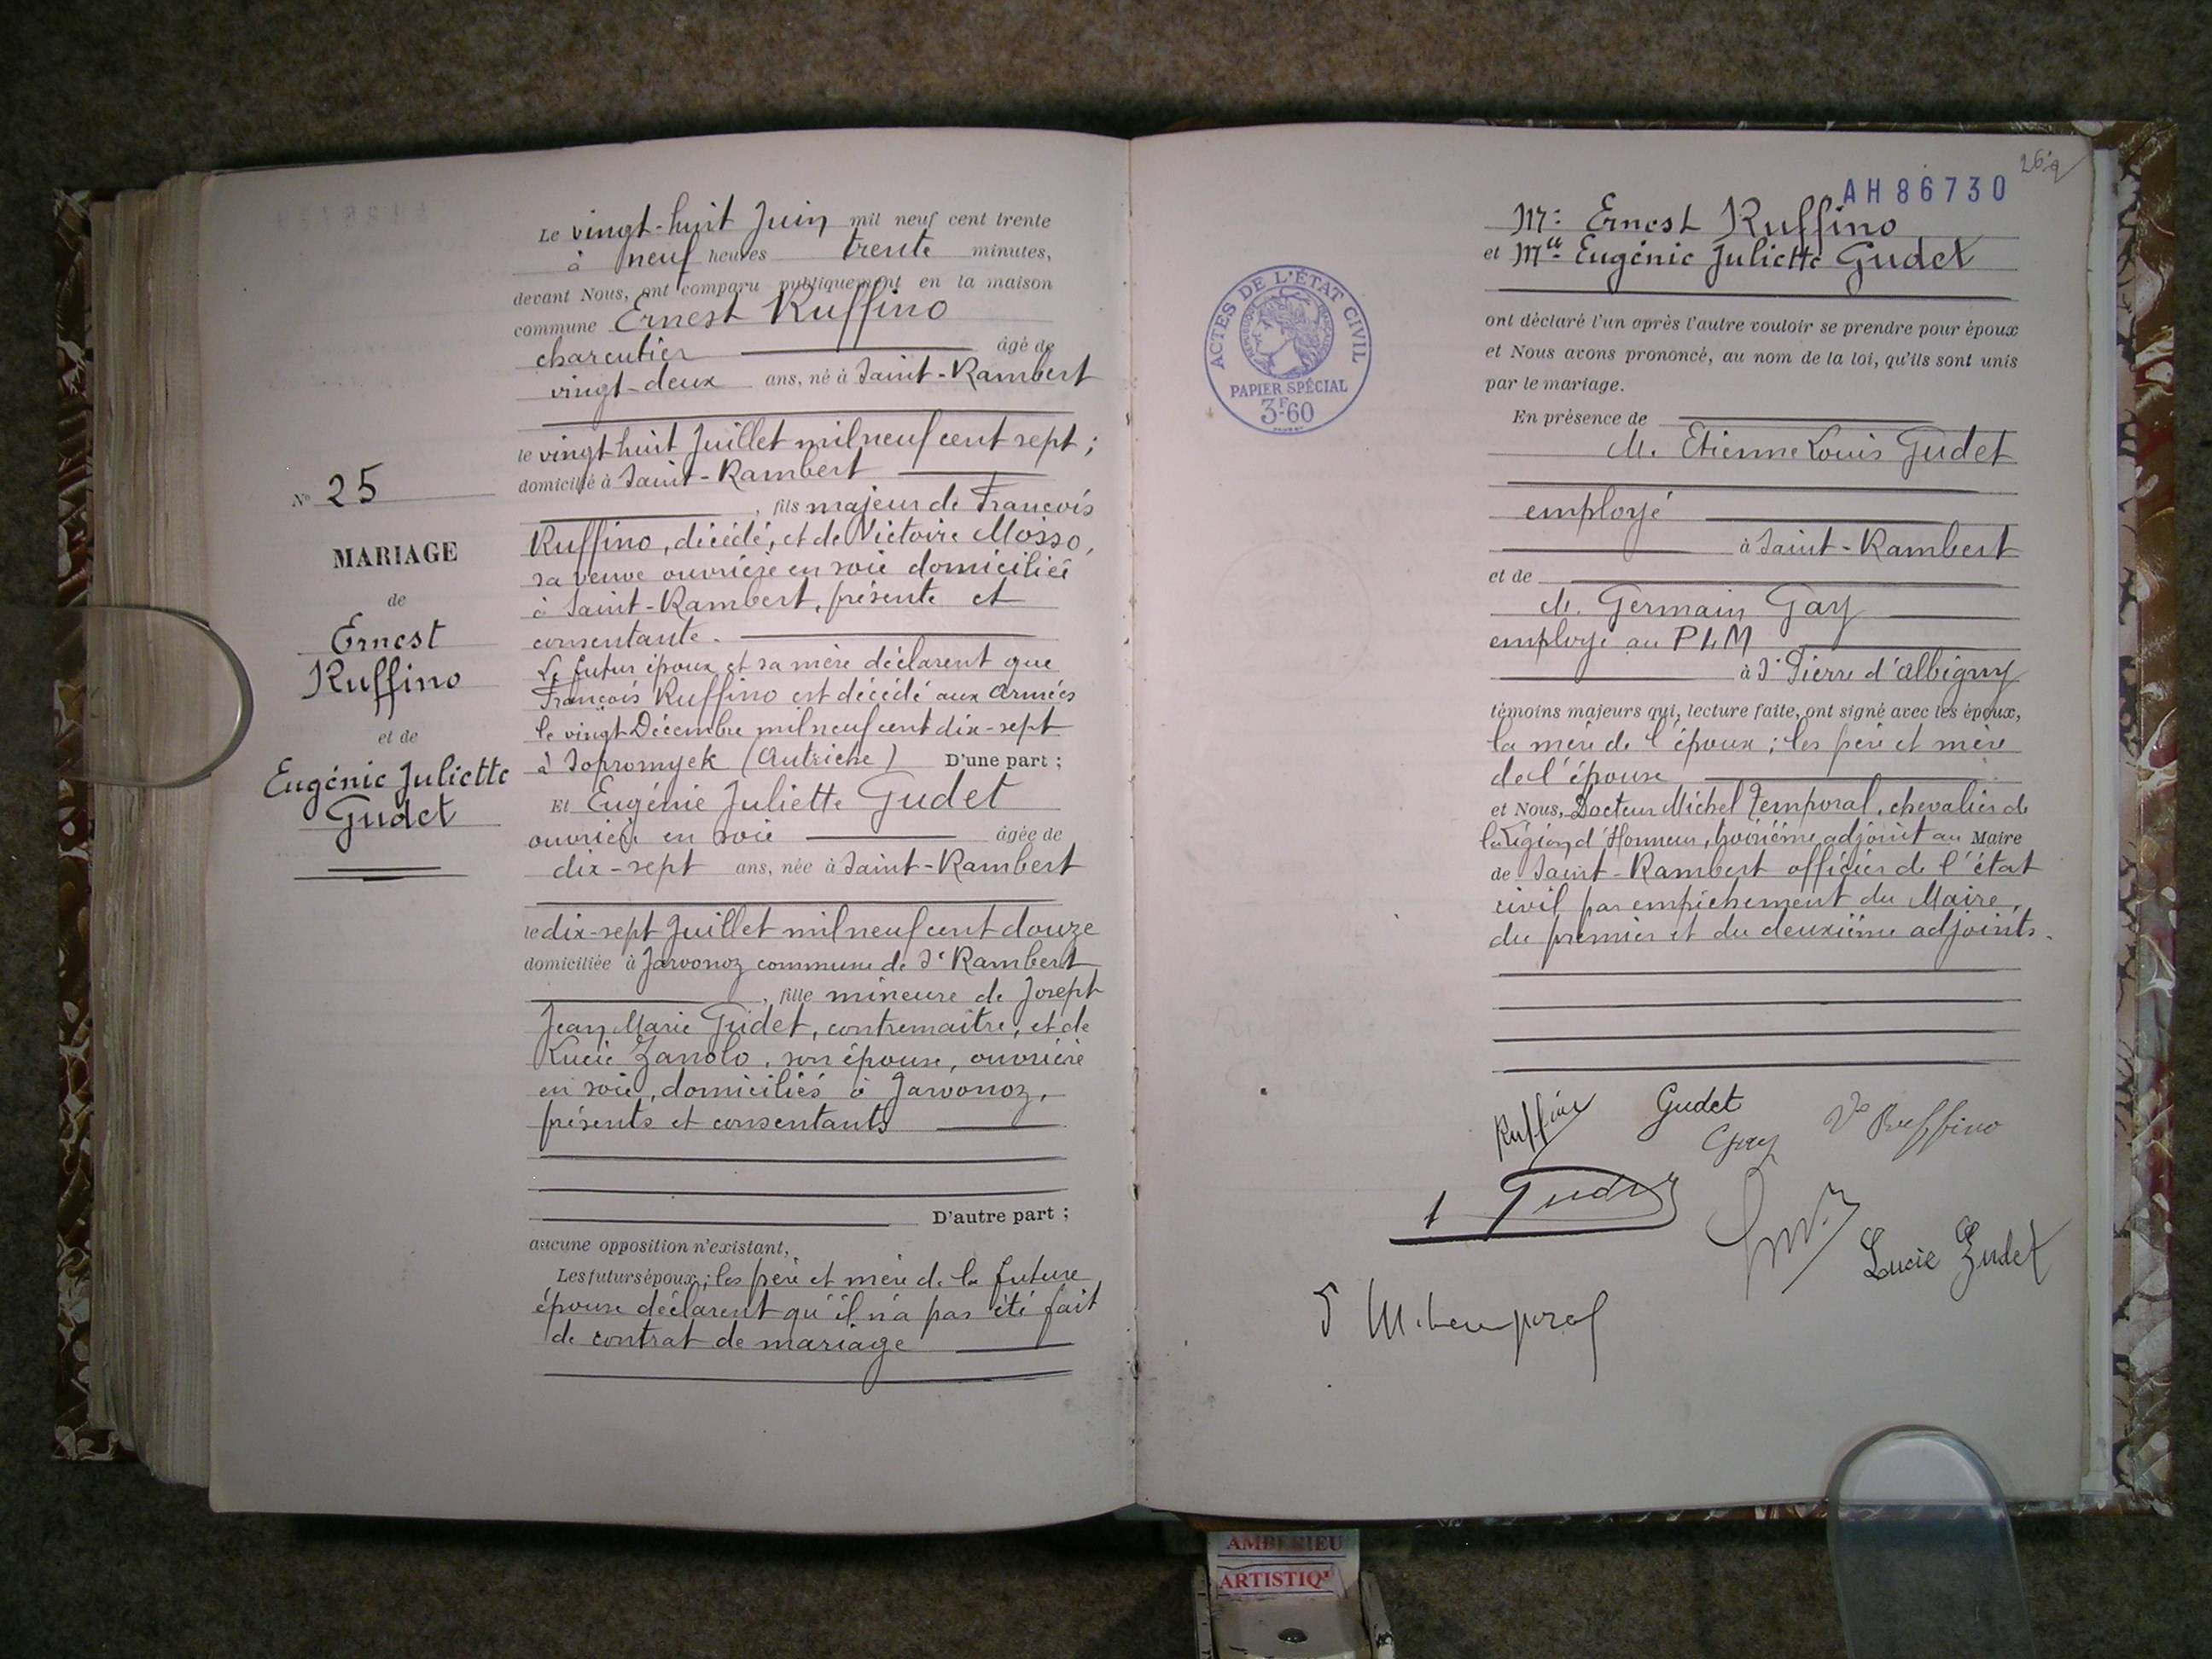 Le vingt-huit Juin mil neuf cent trente
à neuf heures trente minutes,
devant Nous, ont comparu publiquement en la maison
commune Ernest Ruffino
charcutier âgé de
vingt-deux ans, né à Saint-Rambert
le vingt-huit Juillet mil neuf cent sept ;
domicilié à Saint-Rambert
, fils majeur de François
Ruffino, décédé, et de Victoire Mosso,
sa veuve ouvrière en soie domiciliée
à Saint-Rambert, présente et
consentante.
Le futur époux et sa mère déclarent que
François Ruffino est décédé aux armées
le vingt Décembre mil neuf cent dix-sept
à Sopromyek (Autriche) D'une part ;
Et Eugénie Juliette Gudet
ouvrière en soie âgée de
dix-sept ans, née à Saint-Rambert
le dix-sept Juillet mil neuf cent douze
domiciliée à Javonoz commune de St Rambert
, fille mineure de Joseph
Jean Marie Gudet, contremaître, et de
Lucie Zanolo, son épouse, ouvrière
en soie, domiciliés à Javonoz,
présents et consentants
D'autre part ;
aucune opposition n'existant,
Les futurs époux ; les père et mère de la future
épouse déclarent qu'il n'a pas été fait
de contrat de mariage
N° 25
MARIAGE
de
Ernest
Ruffino
et de
Eugénie Juliette
Gudet
AH 86730
Mr Ernest Ruffino
et Mlle Eugénie Juliette Gudet
ont déclaré l'un après l'autre vouloir se prendre pour époux
et Nous avons prononcé, au nom de la loi, qu'ils sont unis
par le mariage.
En présence de
M. Etienne Louis Gudet
employé
à Saint-Rambert
et de
M. Germain Gay
employé au PLM
à St Pierre d'Albigny
témoins majeurs qui, lecture faite, ont signé avec les époux,
la mère de l'époux ; les père et mère
de l'épouse
et Nous, Docteur Michel Temporal, chevalier de
la Légion d'Honneur, troisième adjoint au Maire
de Saint-Rambert officier de l'état
civil par empêchement du Maire,
du premier et du deuxième adjoints.
ACTES DE L'ÉTAT CIVIL
PAPIER SPÉCIAL
3F60
Ruffino Gudet Ve Ruffino
Gay
Gudet
Lucie Gudet
M. Temporal
AMBERIEU
ARTISTIQ